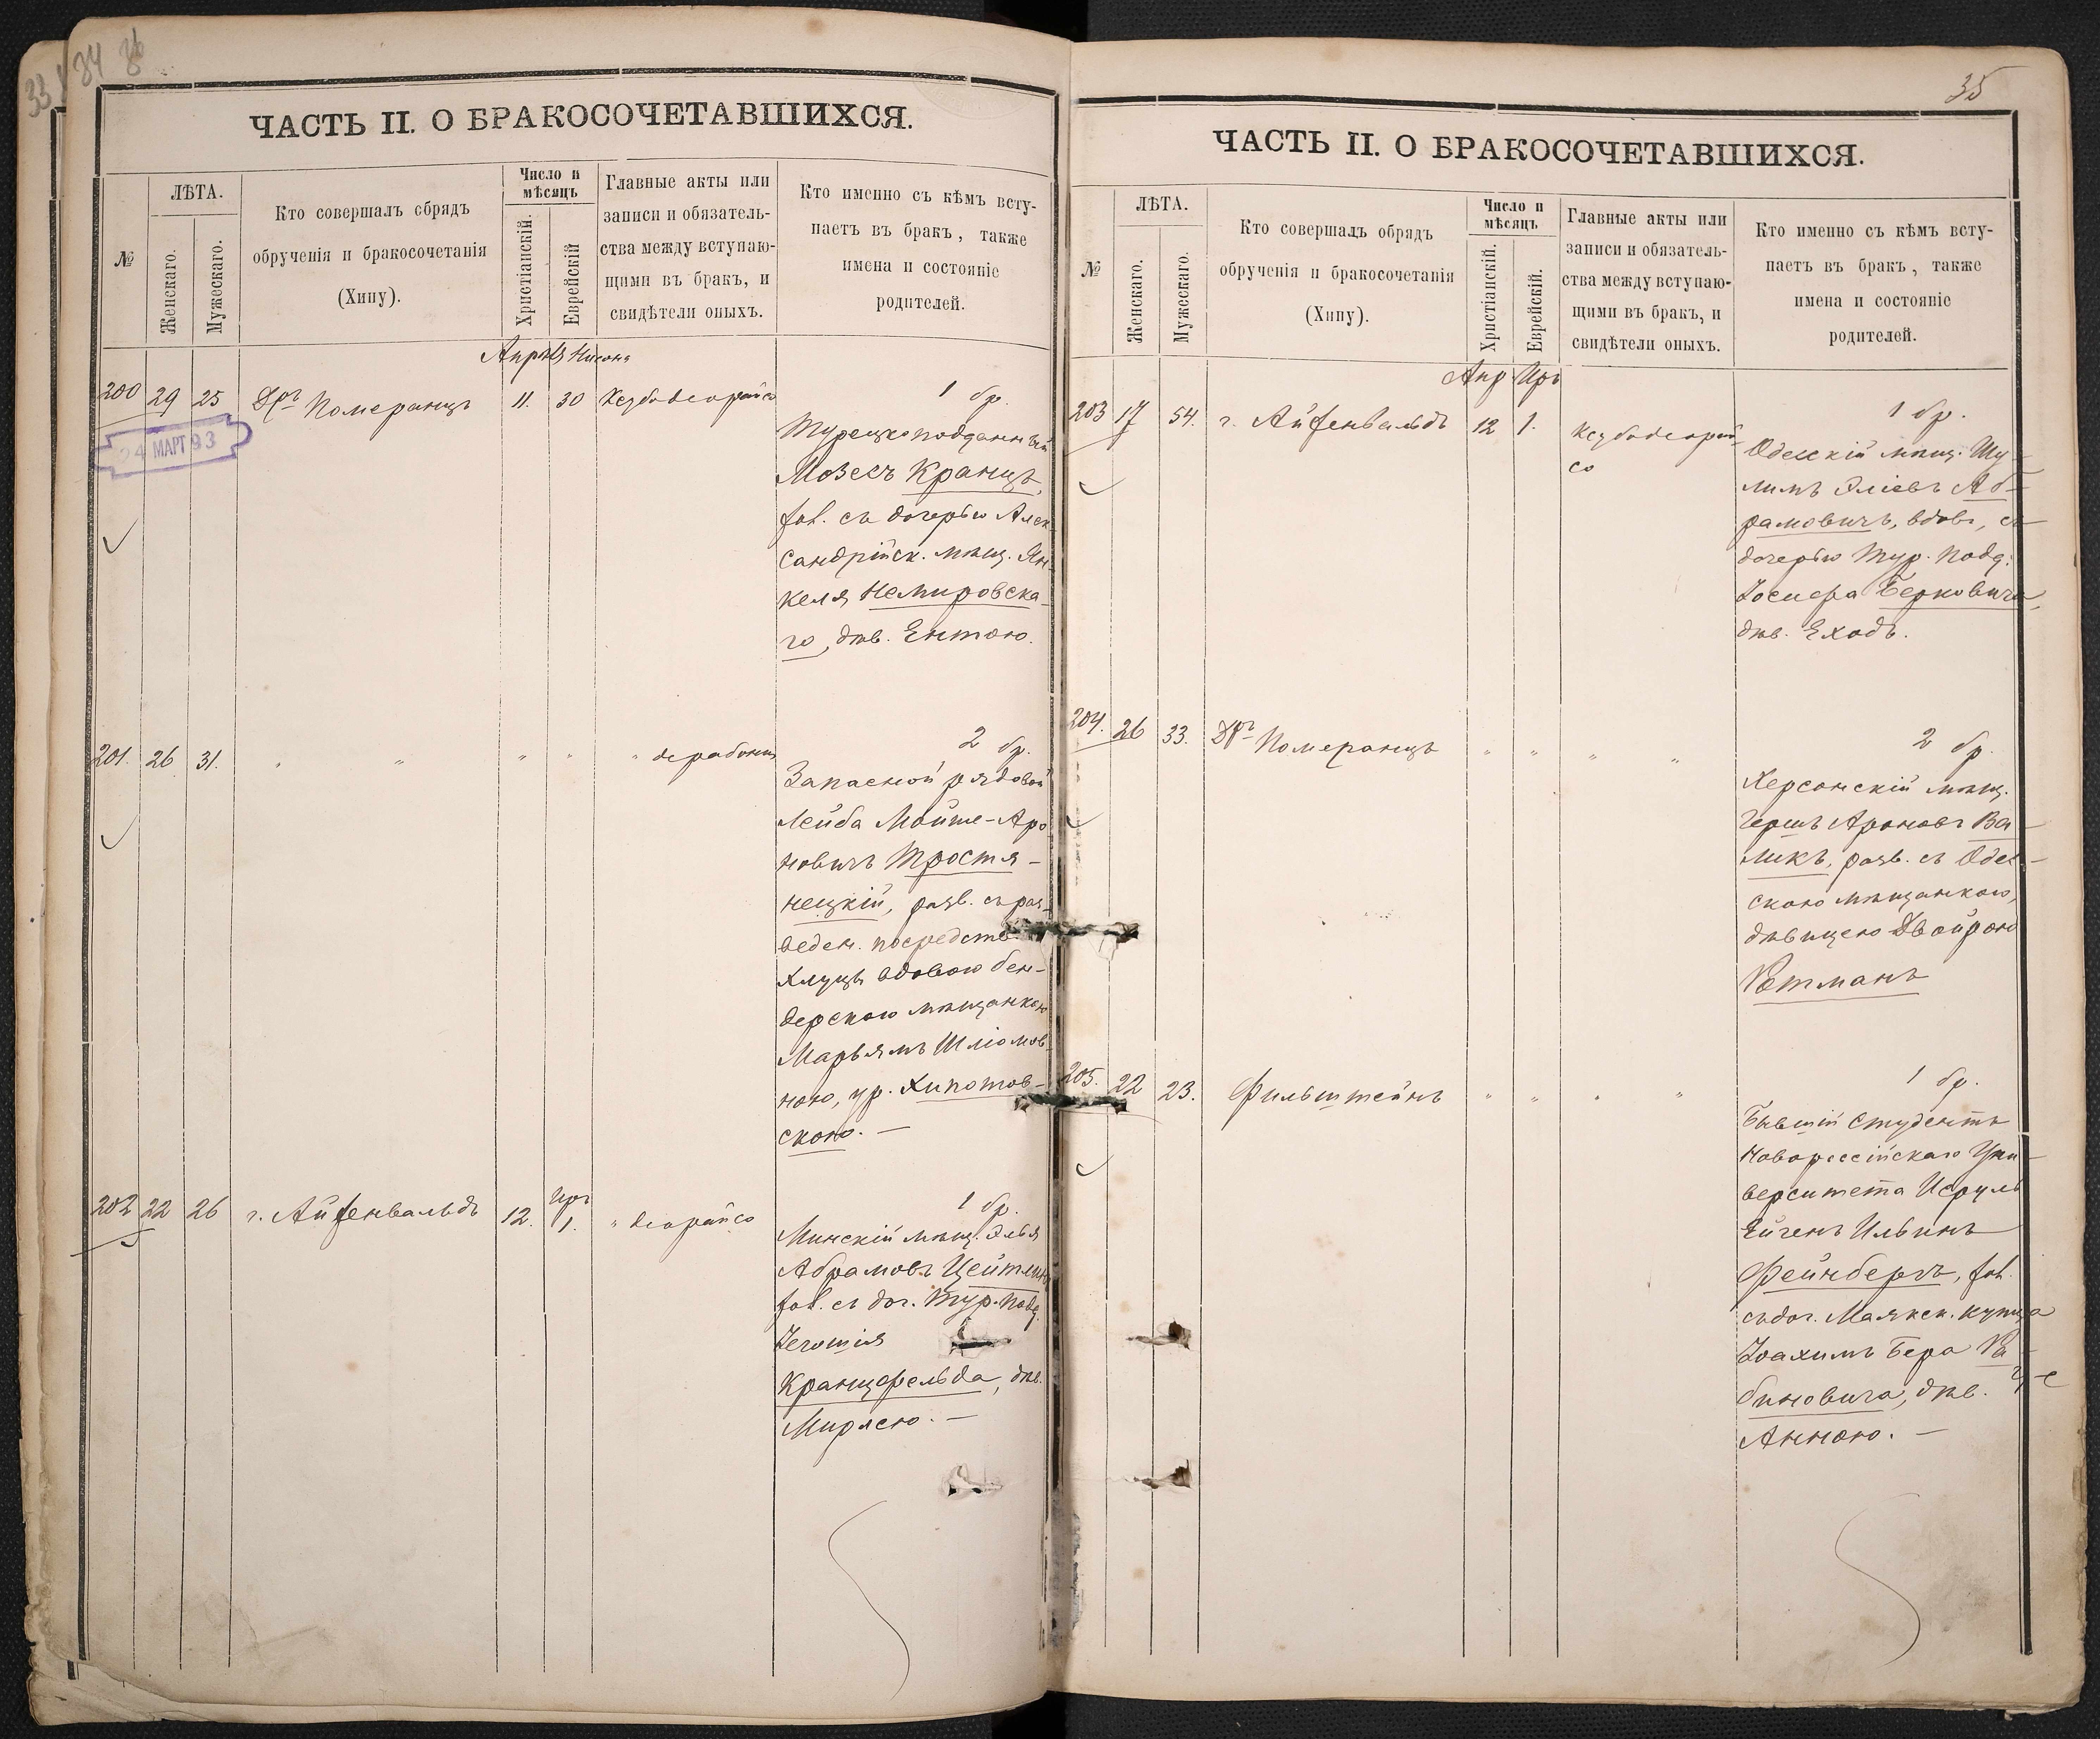 33
34
36
ЧАСТЬ II. О БРАКОСОЧЕТАВШИХСЯ.
№
ЛѢТА.
Женскаго.
Мужескаго.
Кто совершалъ обрядъ
обрученія и бракосочетанія
(Хипу).
Число и
мѣсяцъ
Христіанскій.
Еврейскій
Главные акты или
записи и обязатель-
ства между вступаю-
щими въ бракъ, и
свидѣтели оныхъ.
Кто именно съ кѣмъ всту-
паетъ въ бракъ, также
имена и состояніе
родителей.
Апрѣля Нисона
200 29 25 Дръ Померанцъ 11. 30 Кезубодеорайсо
24 МАРТ 93
1 бр.
Турецкоподданный
Мозесъ Кранцъ,
хол. съ дочерью Алек-
сандрійск. мѣщ. Ян-
келя Немировска-
го, дѣв. Ентою.
201. 26 31. " " " " " дерабонон
2 бр.
Запасной рядовой
Лейба Мойше-Аро
новичъ Тростя-
нецкій, разв. съ раз-
веден. посредств.
Хлуцы вдовою бен-
дерскою мѣщанкою
Марьямъ Шліомов-
ною, ур. Хипотов-
скою. —
202 22 26 г. Айзенвальдъ 12. Иръ 1. " деорайсо
1 бр.
Минскій мѣщ. Элья
Абрамовъ Цейтлинъ
хол. съ доч. Тур. под.
Іегошія
Кранцфельда, дѣв.
Мирлею. —
35
ЧАСТЬ II. О БРАКОСОЧЕТАВШИХСЯ.
№
ЛѢТА.
Женскаго.
Мужескаго.
Кто совершалъ обрядъ
обрученія и бракосочетанія
(Хипу).
Число и
мѣсяцъ
Христіанскій.
Еврейскій.
Главные акты или
записи и обязатель-
ства между вступаю-
щими въ бракъ, и
свидѣтели оныхъ.
Кто именно съ кѣмъ всту-
паетъ въ бракъ, также
имена и состояніе
родителей.
Апр Иръ
203 17 54. г. Айзенвальдъ 12 1. Кезубодеорай-
со
1 бр.
Одесскій мѣщ. Шу-
лимъ Эліевъ Аб-
рамовичъ, вдов., съ
дочерью Тур. подд.
Іосифа Берковича,
дѣв. Еходъ.
204. 26 33. Дръ Померанцъ " " " "
2 бр.
Херсонскій мѣщ.
Гершъ Ароновъ Ва-
ликъ, разв. съ Одес-
скою мѣщанкою,
дѣвицею Двойрою
Ротманъ
205. 22 23. Фильштейнъ " " " "
1 бр.
Бывшій студентъ
Новороссійскаго Уни-
верситета Исруль
Ейгенъ Ильинъ
Фейнбергъ, хол.
съ доч. Маякск. купца
Іоахимъ Бера Ра-
биновича, дѣв.
Анною. —